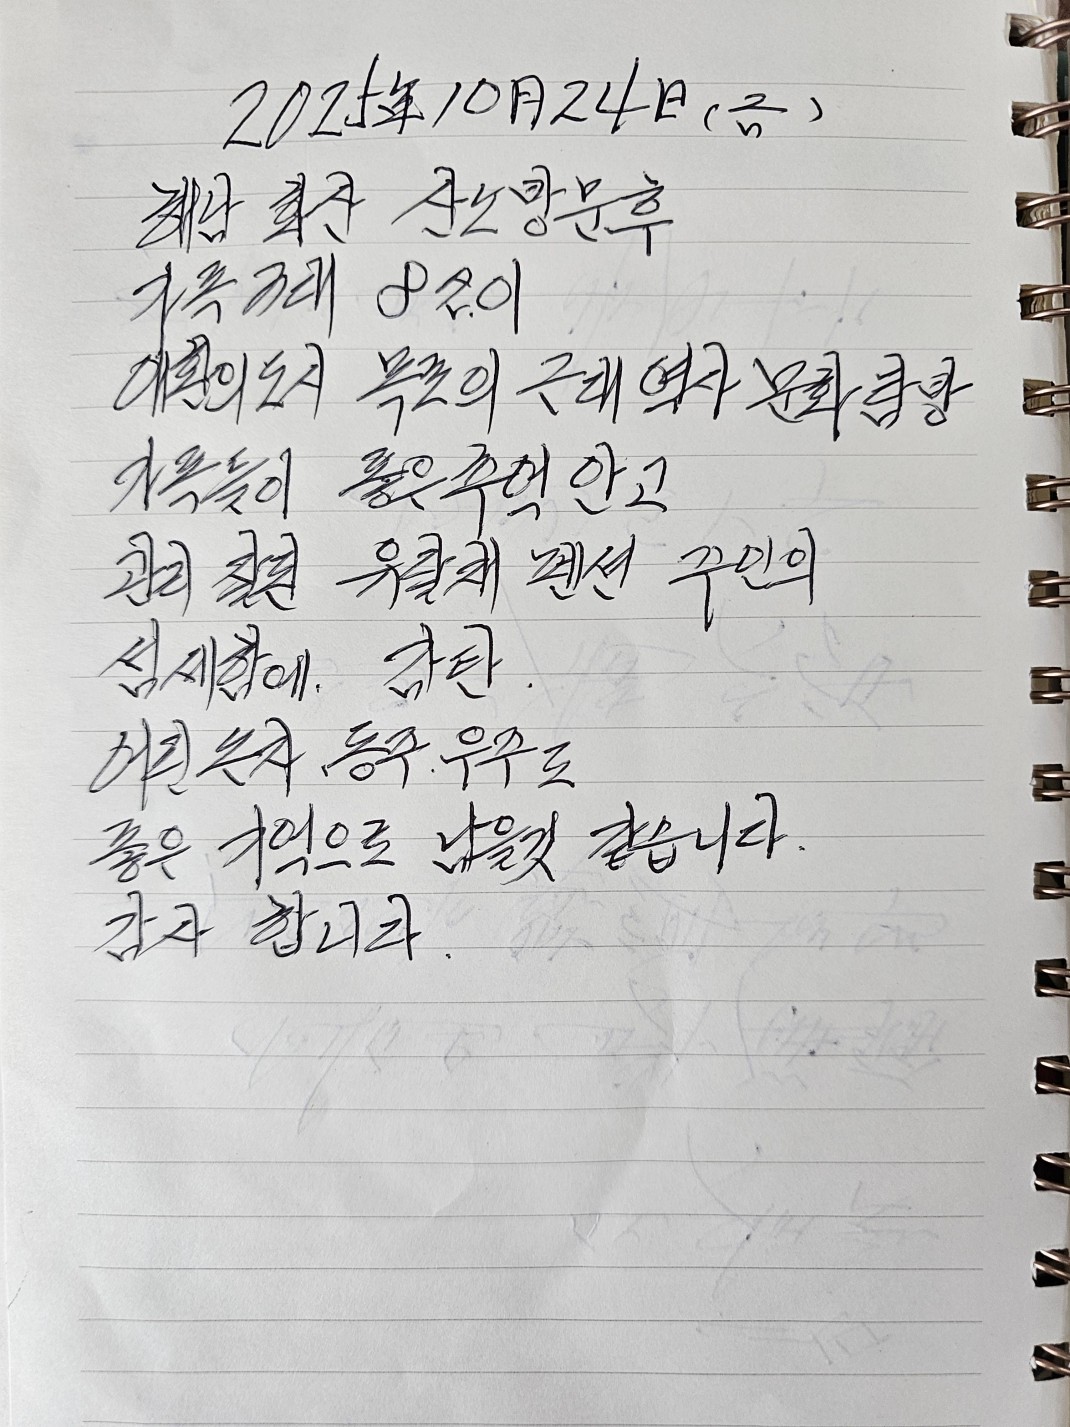 2025年10月24日(금)
해남 화산 선산방문후
가족 3대 8명이
애환의도시 목포의 근대역사문화탐방
가족들이 좋은추억안고
관리 잘된 유달재 펜션 주인의
섬세함에. 감탄.
어린 손자 동주.우주도
좋은 기억으로 남을것 같습니다.
감사 합니다.